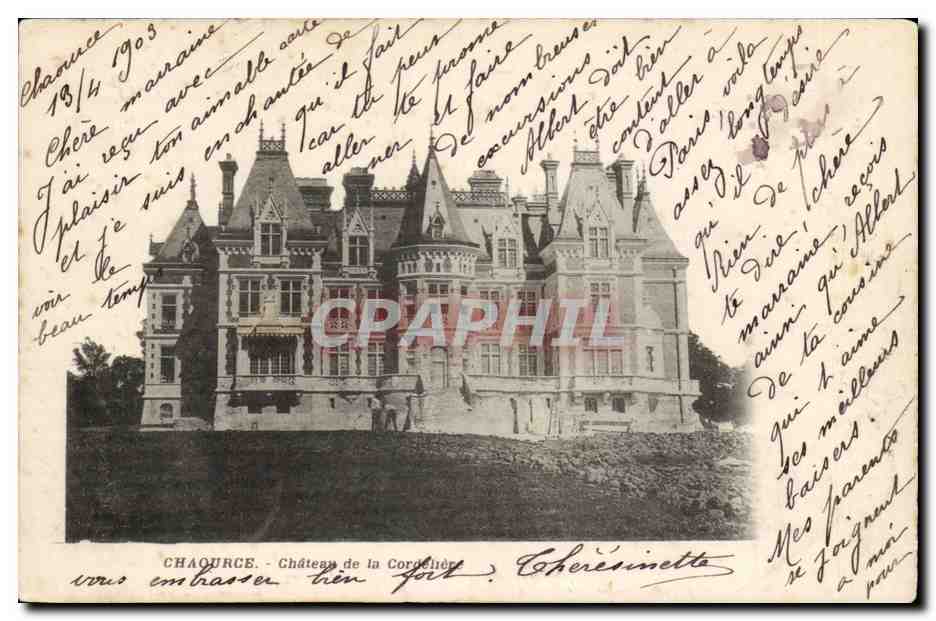 Chaource
13/4 1903
Chère marraine
J'ai reçu avec
plaisir ton aimable carte
et je suis enchantée de
voir le
beau temps
qu'il fait
car tu peux
aller te prome
ner et faire
de nombreuses
excursions
Albert doit
être bien
content
d'aller à
Paris, voila
assez longtemps
qu'il desire
Rien de plus à
te dire, chère
marraine, reçois
ainsi qu'Albert
de ta cousine
qui t'aime
ses meilleurs
baisers.
Mes parents
se joignent
à moi
pour
CPAPHIL
CHAOURCE. - Château de la Cordelière
vous embrasser bien fort. Thérésinette